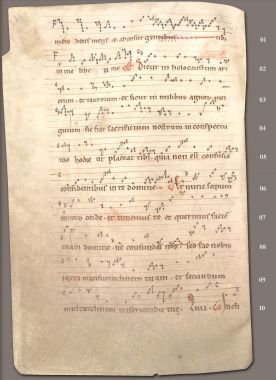 meus deus meus
in me libe me Sicut in holocaustum ar
etum et taurorum et sicut in milibus agnorum pin
guium sic fiat sacrificium nostrum in conspectu
tuo hodie ut placeat tibi quia non est confusio
confidentibus in te domine Et nunc sequimur
in toto corde et timemus te et querimus facie
tuam domine ne confundas nos sed fac nobis
iuxta mansuetudinem tuam et secundum
multitudinem misericordie tue Quia
01
02
03
04
05
06
07
08
09
10